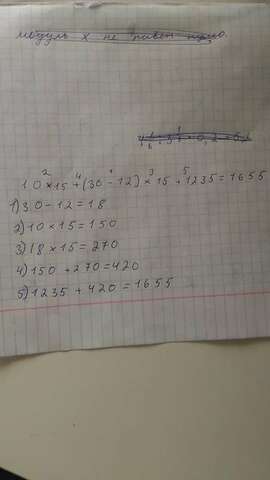 модуль х не равен нулю.
10×15+(30-12)×15+1235=1655
1) 30-12=18
2) 10×15=150
3) 18×15=270
4) 150+270=420
5) 1235+420=1655